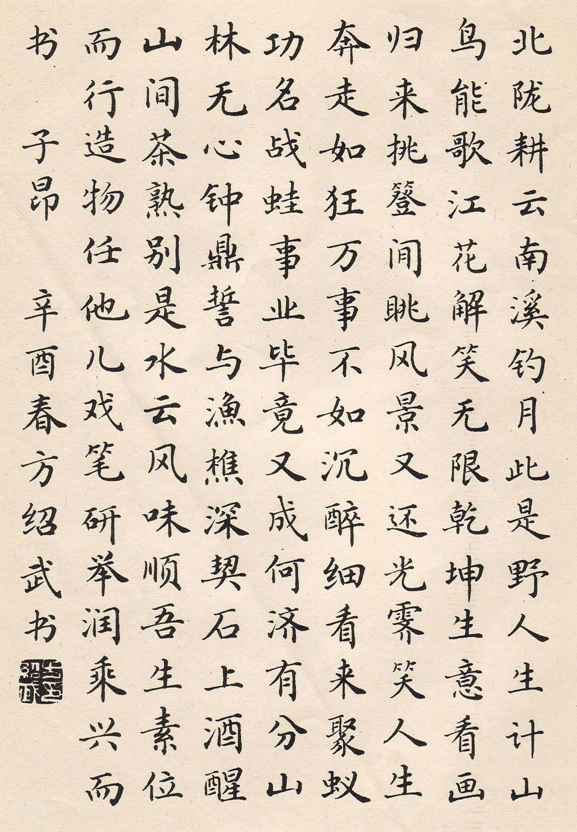 北陇耕云南溪钓月此是野人生计山
鸟能歌江花解笑无限乾坤生意看画
归来挑簦闲眺风景又还光霁笑人生
奔走如狂万事不如沉醉细看来聚蚁
功名战蛙事业毕竟又成何济有分山
林无心钟鼎誓与渔樵深契石上酒醒
山间茶熟别是水云风味顺吾生素位
而行造物任他儿戏笔研举润乘兴而
书 子昂 辛酉春方绍武书